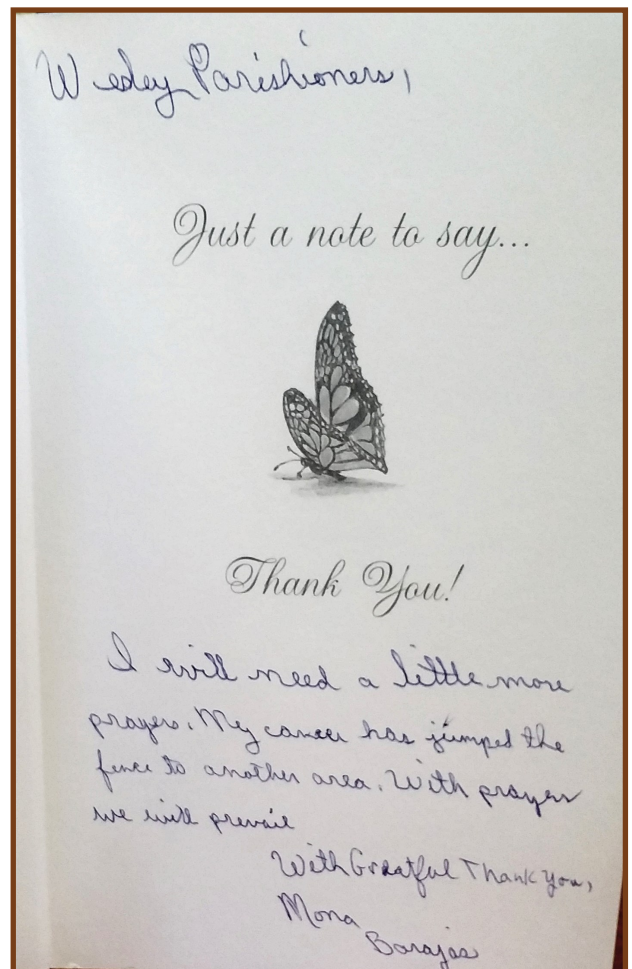 Wesley Parishioners,
Just a note to say...
Thank You!
I will need a little more
prayers. My cancer has jumped the
fence to another area. With prayer
we will prevail
With Greatful Thank You,
Mona
Barajas